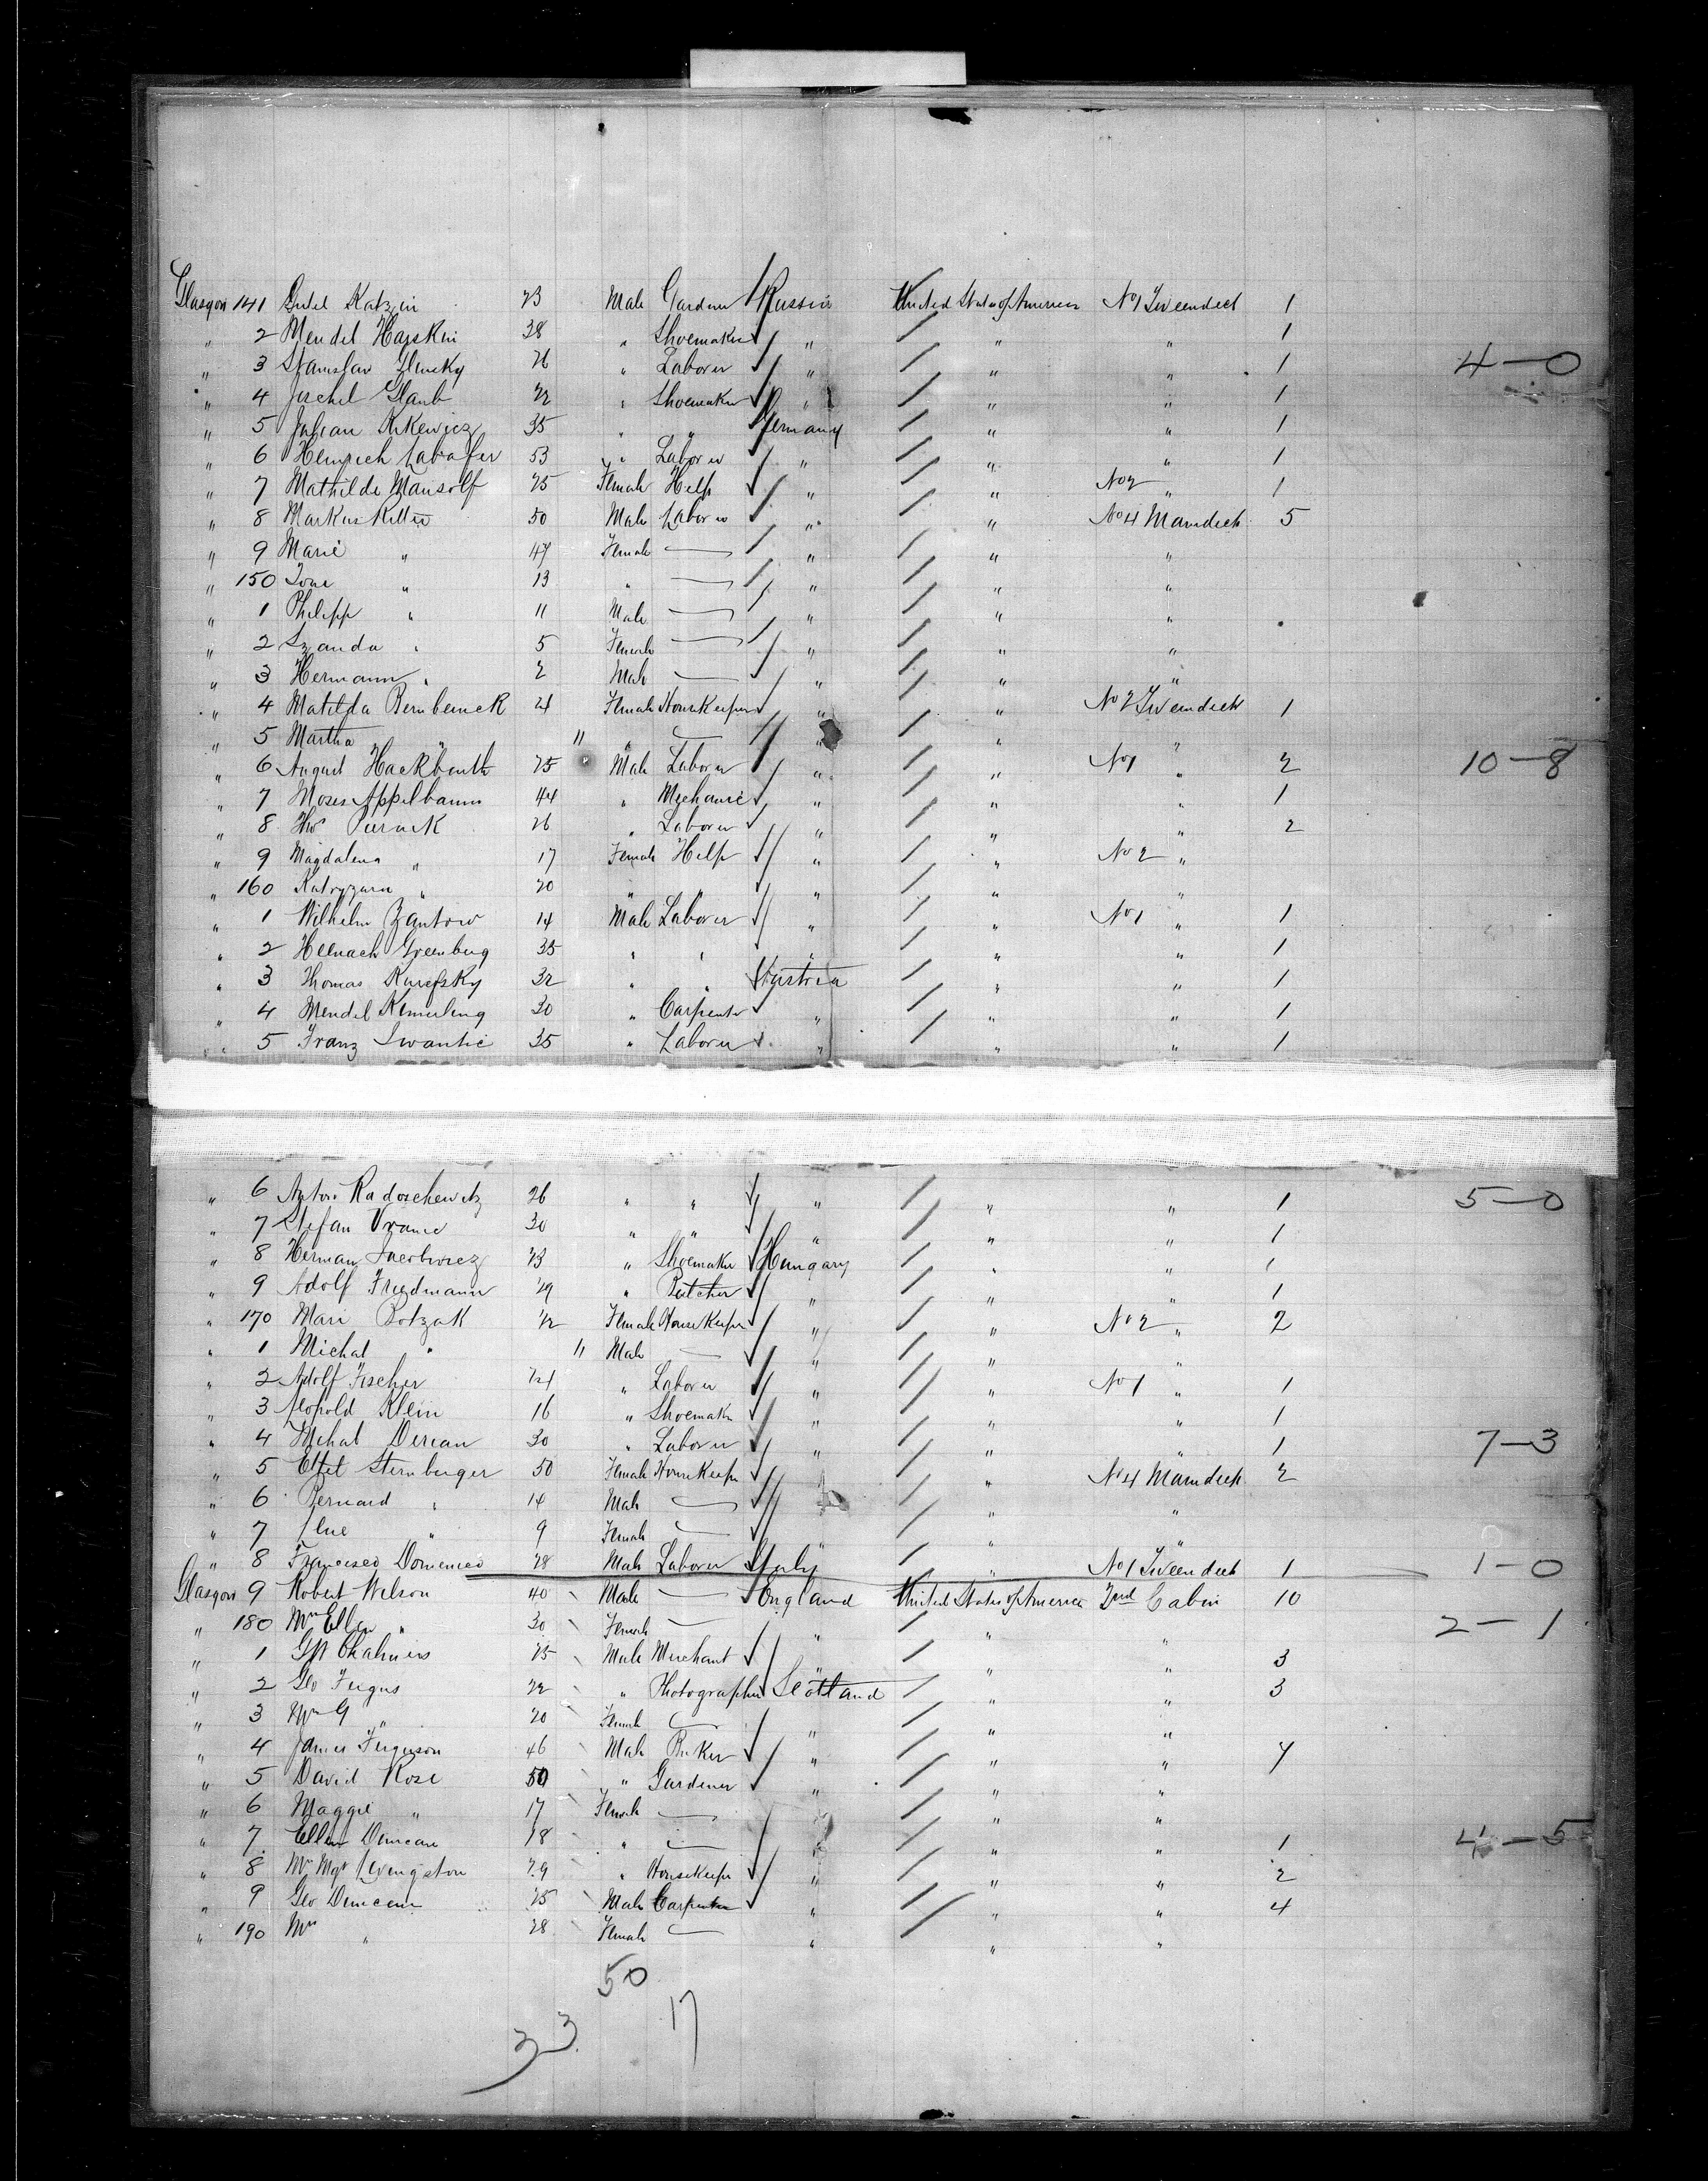 Glasgow 141 Katzin 23 Male Gardner Russia United States of America No 1 Tweendeck 1
" 2 Mendel Hayskin 38 " Shoemaker " " " 1
" 3 Stanislav 26 " Laborer " " " 1 4—0
" 4 Jerchel Glaub 22 " Shoemaker " " " 1
" 5 Julian 35 " " Germany " " 1
" 6 Heinrich 53 " Laborer " " " 1
" 7 Mathilde Mansolf 25 Female Help " " No 2 " 1
" 8 Markus 50 Male Laborer " " No 4 Maindeck 5
" 9 Marie " 47 Female — " " "
" 150 " 13 " — " " "
" 1 Philipp " 11 Male — " " "
" 2 Szanda " 5 Female — " " "
" 3 Hermann " 2 Male — " " "
" 4 Matilda 21 Female Housekeeper " " No 2 Tweendeck 1
" 5 Martha " 11 " — " " "
" 6 August 25 Male Laborer " " No 1 " 2 10—8
" 7 Moses Appelbaum 44 " Mechanic " " " 1
" 8 26 " Laborer " " " 2
" 9 Magdalena " 17 Female Help " " No 2 "
" 160 " 20 " " " " "
" 1 Wilhelm Zantow 14 Male Laborer " " No 1 " 1
" 2 Greenberg 35 " " " " " 1
" 3 Thomas 32 " " Austria " " 1
" 4 Mendel 30 " Carpenter " " " 1
" 5 Franz 35 " Laborer " " " 1
" 6 Anton Radoschewitz 26 " " " " " 1 5—0
" 7 Stefan 30 " " " " " 1
" 8 Herman 23 " Shoemaker Hungary " " 1
" 9 Adolf Friedmann 29 " Butcher " " " 1
" 170 Mari Botzak Female Housekeeper " " No 2 " 2
" 1 Michal " 11 Male — " " "
" 2 Adolf Fischer 24 " Laborer " " No 1 " 1
" 3 Leopold Klein 16 " Shoemaker " " " 1
" 4 Michal 30 " Laborer " " " 1 7—3
" 5 Ettel Sternberger 50 Female Housekeeper " " No 4 Maindeck 2
" 6 Bernard " 14 Male — " " "
" 7 " 9 Female — " " "
" 8 Francesco Domenico 28 Male Laborer Italy " No 1 Tweendeck 1 1—0
Glasgow 9 Robert Wilson 40 Male — England United States of America 2nd Cabin 10
" 180 Mrs Ellen " 30 Female — " " " 2—1
" 1 Chalmers 25 Male Merchant " " " 3
" 2 Geo Fergus 22 " Photographer Scotland " " 3
" 3 Mrs G " 20 Female — " " "
" 4 James Ferguson 46 Male Baker " " "
" 5 David Rose 50 " Gardener " " "
" 6 Maggie " 17 Female — " " "
" 7 Ellen Duncan 18 " — " " " 1 4—5
" 8 Mrs Mgt Livingston 29 " Housekeeper " " " 2
" 9 Geo Duncan 25 Male Carpenter " " " 4
" 190 Mrs " 28 Female — " " "
50
33 17